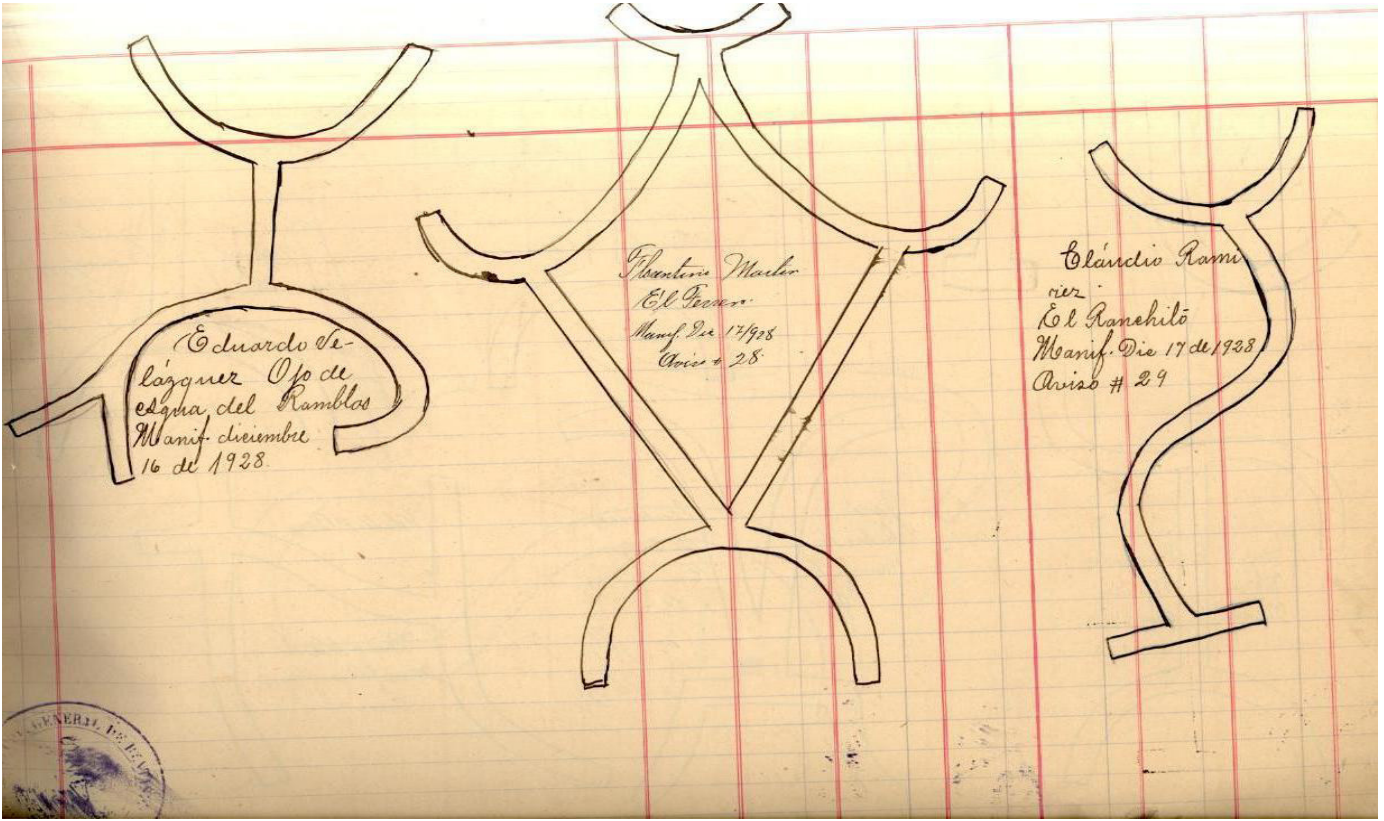 Eduardo Ve-
lázquez Ojo de
Agua del Ramblas
Manif. diciembre
16 de 1928.
Florentino Martin
El
Manif. Dic 17/928
Aviso # 28.
Claúdio Rami
rez.
El Ranchito
Manif. Dic 17 de 1928
Aviso # 29
GENERAL DE